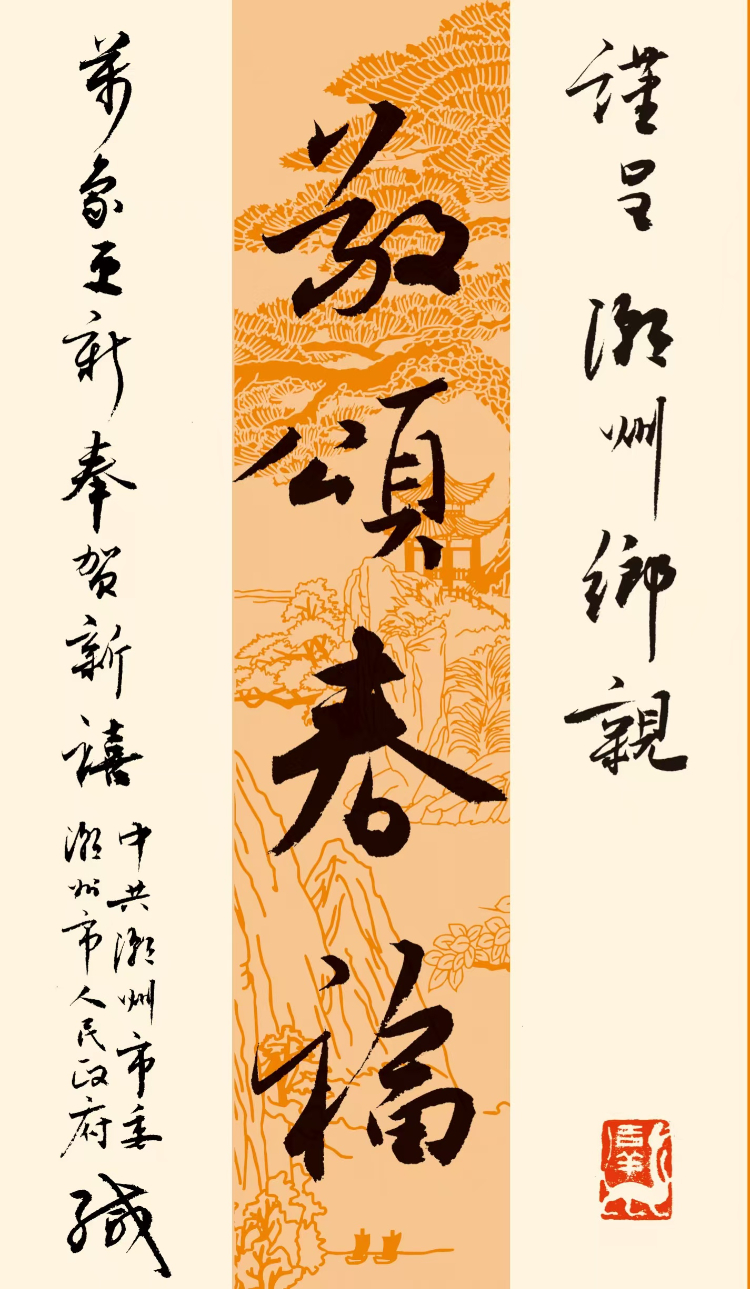 謹呈 潮州鄉親
敬頌春福
萬象更新奉賀新禧
中共潮州市委
潮州市人民政府
緘